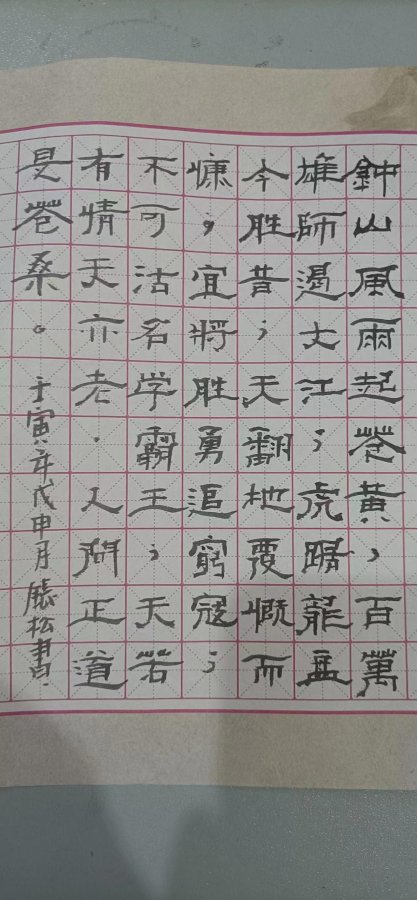 鈡山風雨起苍黄，百萬
雄師過大江；虎踞龍盘
今胜昔；天翻地覆慨而
慷，宜將胜勇追窮寇；
不可沽名学霸王；天若
有情天亦老．人間正道
是苍桑。壬寅年戊申月張松書